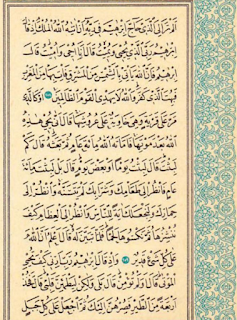 أَلَمْ تَرَ إِلَى الَّذِي حَاجَّ إِبْرٰهٖمَ فِي رَبِّهِ أَنْ اٰتٰيهُ اللّٰهُ الْمُلْكَ إِذْ قَالَ
إِبْرٰهٖمُ رَبِّيَ الَّذِي يُحْيِي وَيُمِيتُ قَالَ أَنَا أُحْيِي وَأُمِيتُ قَالَ
إِبْرٰهٖمُ فَإِنَّ اللّٰهَ يَأْتِي بِالشَّمْسِ مِنَ الْمَشْرِقِ فَأْتِ بِهَا مِنَ الْمَغْرِبِ
فَبُهِتَ الَّذِي كَفَرَ وَاللّٰهُ لَا يَهْدِي الْقَوْمَ الظَّالِمِينَ ٢٥٨ أَوْ كَالَّذِي
مَرَّ عَلٰى قَرْيَةٍ وَهِيَ خَاوِيَةٌ عَلٰى عُرُوشِهَا قَالَ أَنّٰى يُحْيِي هٰذِهِ
اللّٰهُ بَعْدَ مَوْتِهَا فَأَمَاتَهُ اللّٰهُ مِائَةَ عَامٍ ثُمَّ بَعَثَهُ قَالَ كَمْ
لَبِثْتَ قَالَ لَبِثْتُ يَوْمًا أَوْ بَعْضَ يَوْمٍ قَالَ بَلْ لَبِثْتَ مِائَةَ
عَامٍ فَانْظُرْ إِلٰى طَعَامِكَ وَشَرَابِكَ لَمْ يَتَسَنَّهْ وَانْظُرْ إِلٰى
حِمَارِكَ وَلِنَجْعَلَكَ اٰيَةً لِلنَّاسِ وَانْظُرْ إِلَى الْعِظَامِ كَيْفَ
نُنْشِزُهَا ثُمَّ نَكْسُوهَا لَحْمًا فَلَمَّا تَبَيَّنَ لَهُ قَالَ أَعْلَمُ أَنَّ اللّٰهَ عَلٰى
كُلِّ شَيْءٍ قَدِيرٌ ٢٥٩ وَإِذْ قَالَ إِبْرٰهٖمُ رَبِّ أَرِنِي كَيْفَ تُحْيِي
الْمَوْتٰى قَالَ أَوَلَمْ تُؤْمِنْ قَالَ بَلٰى وَلٰكِنْ لِيَطْمَئِنَّ قَلْبِي قَالَ فَخُذْ
أَرْبَعَةً مِنَ الطَّيْرِ فَصُرْهُنَّ إِلَيْكَ ثُمَّ اجْعَلْ عَلٰى كُلِّ جَبَلٍ